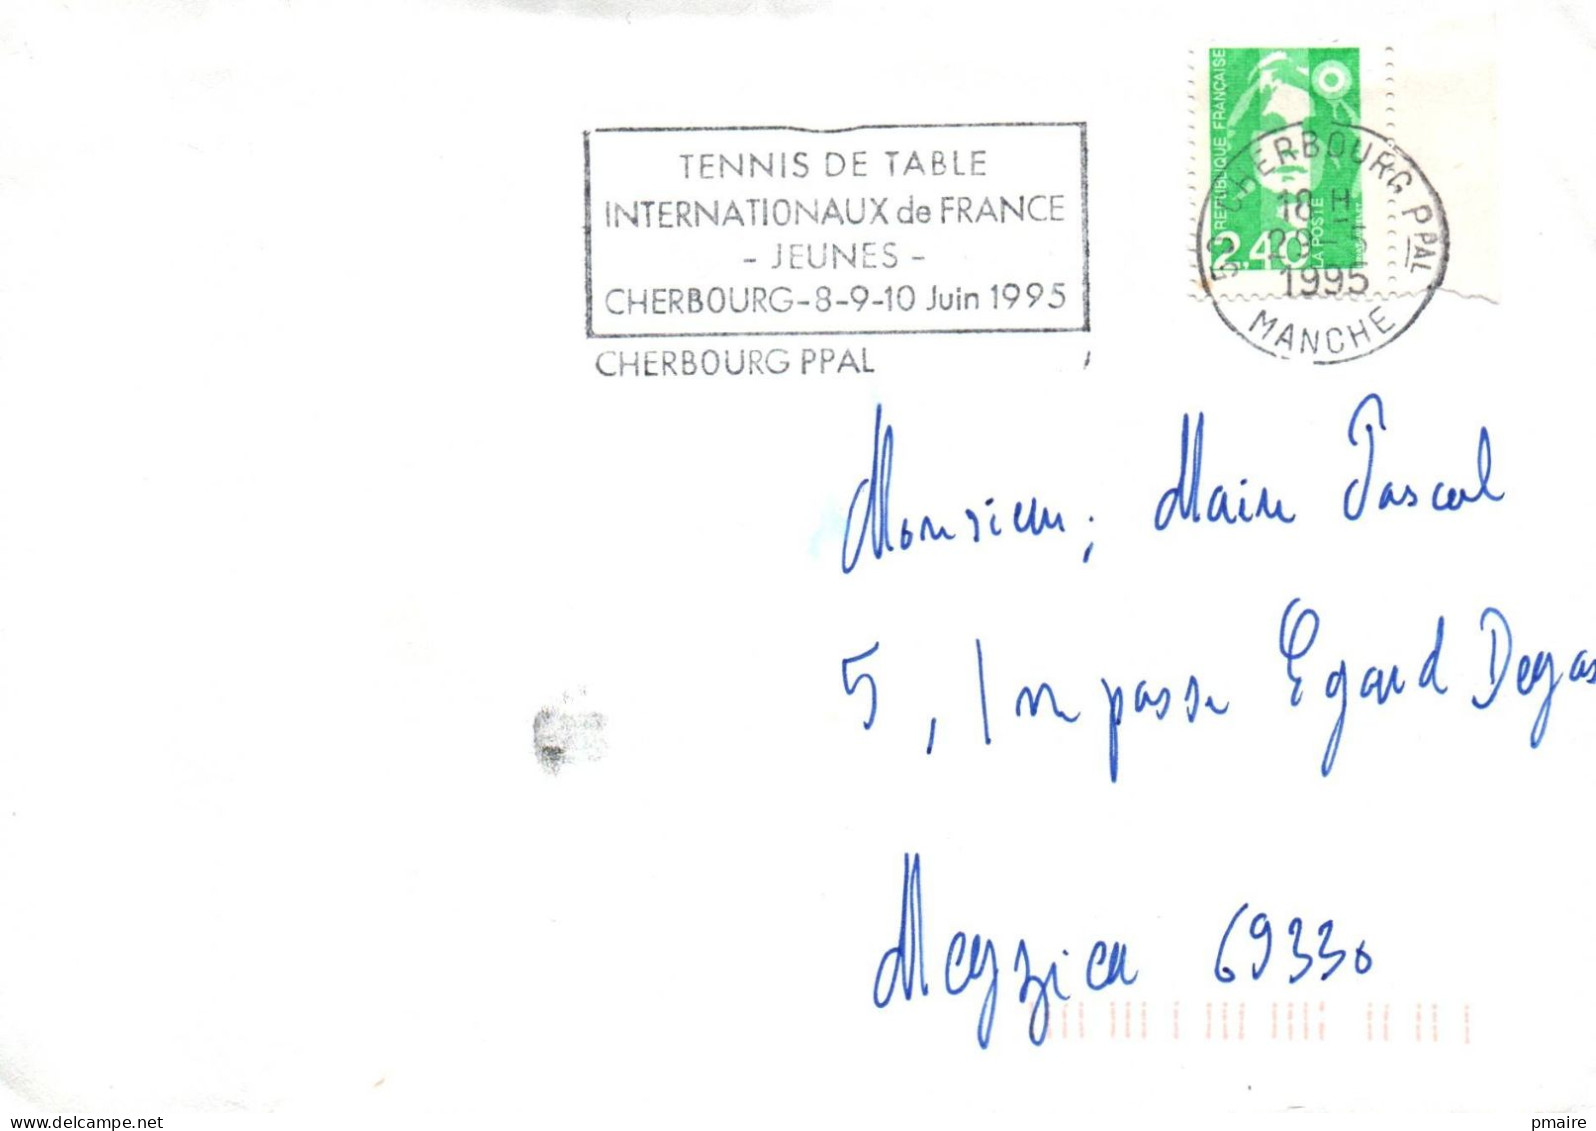 TENNIS DE TABLE
INTERNATIONAUX de FRANCE
- JEUNES -
CHERBOURG-8-9-10 Juin 1995
CHERBOURG PPAL
REPUBLIQUE FRANÇAISE
2,40
LA POSTE
50 CHERBOURG PPAL
18 H
29-5
1995
MANCHE
Monsieur, Maire Pascal
5, Impasse Egard Degas
Meyzieu 69330
www.delcampe.net
pmaire